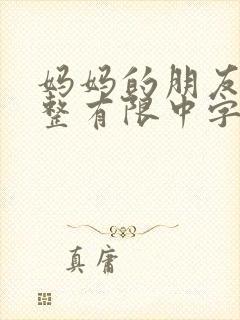 妈妈的朋友
整有限中字
真庸